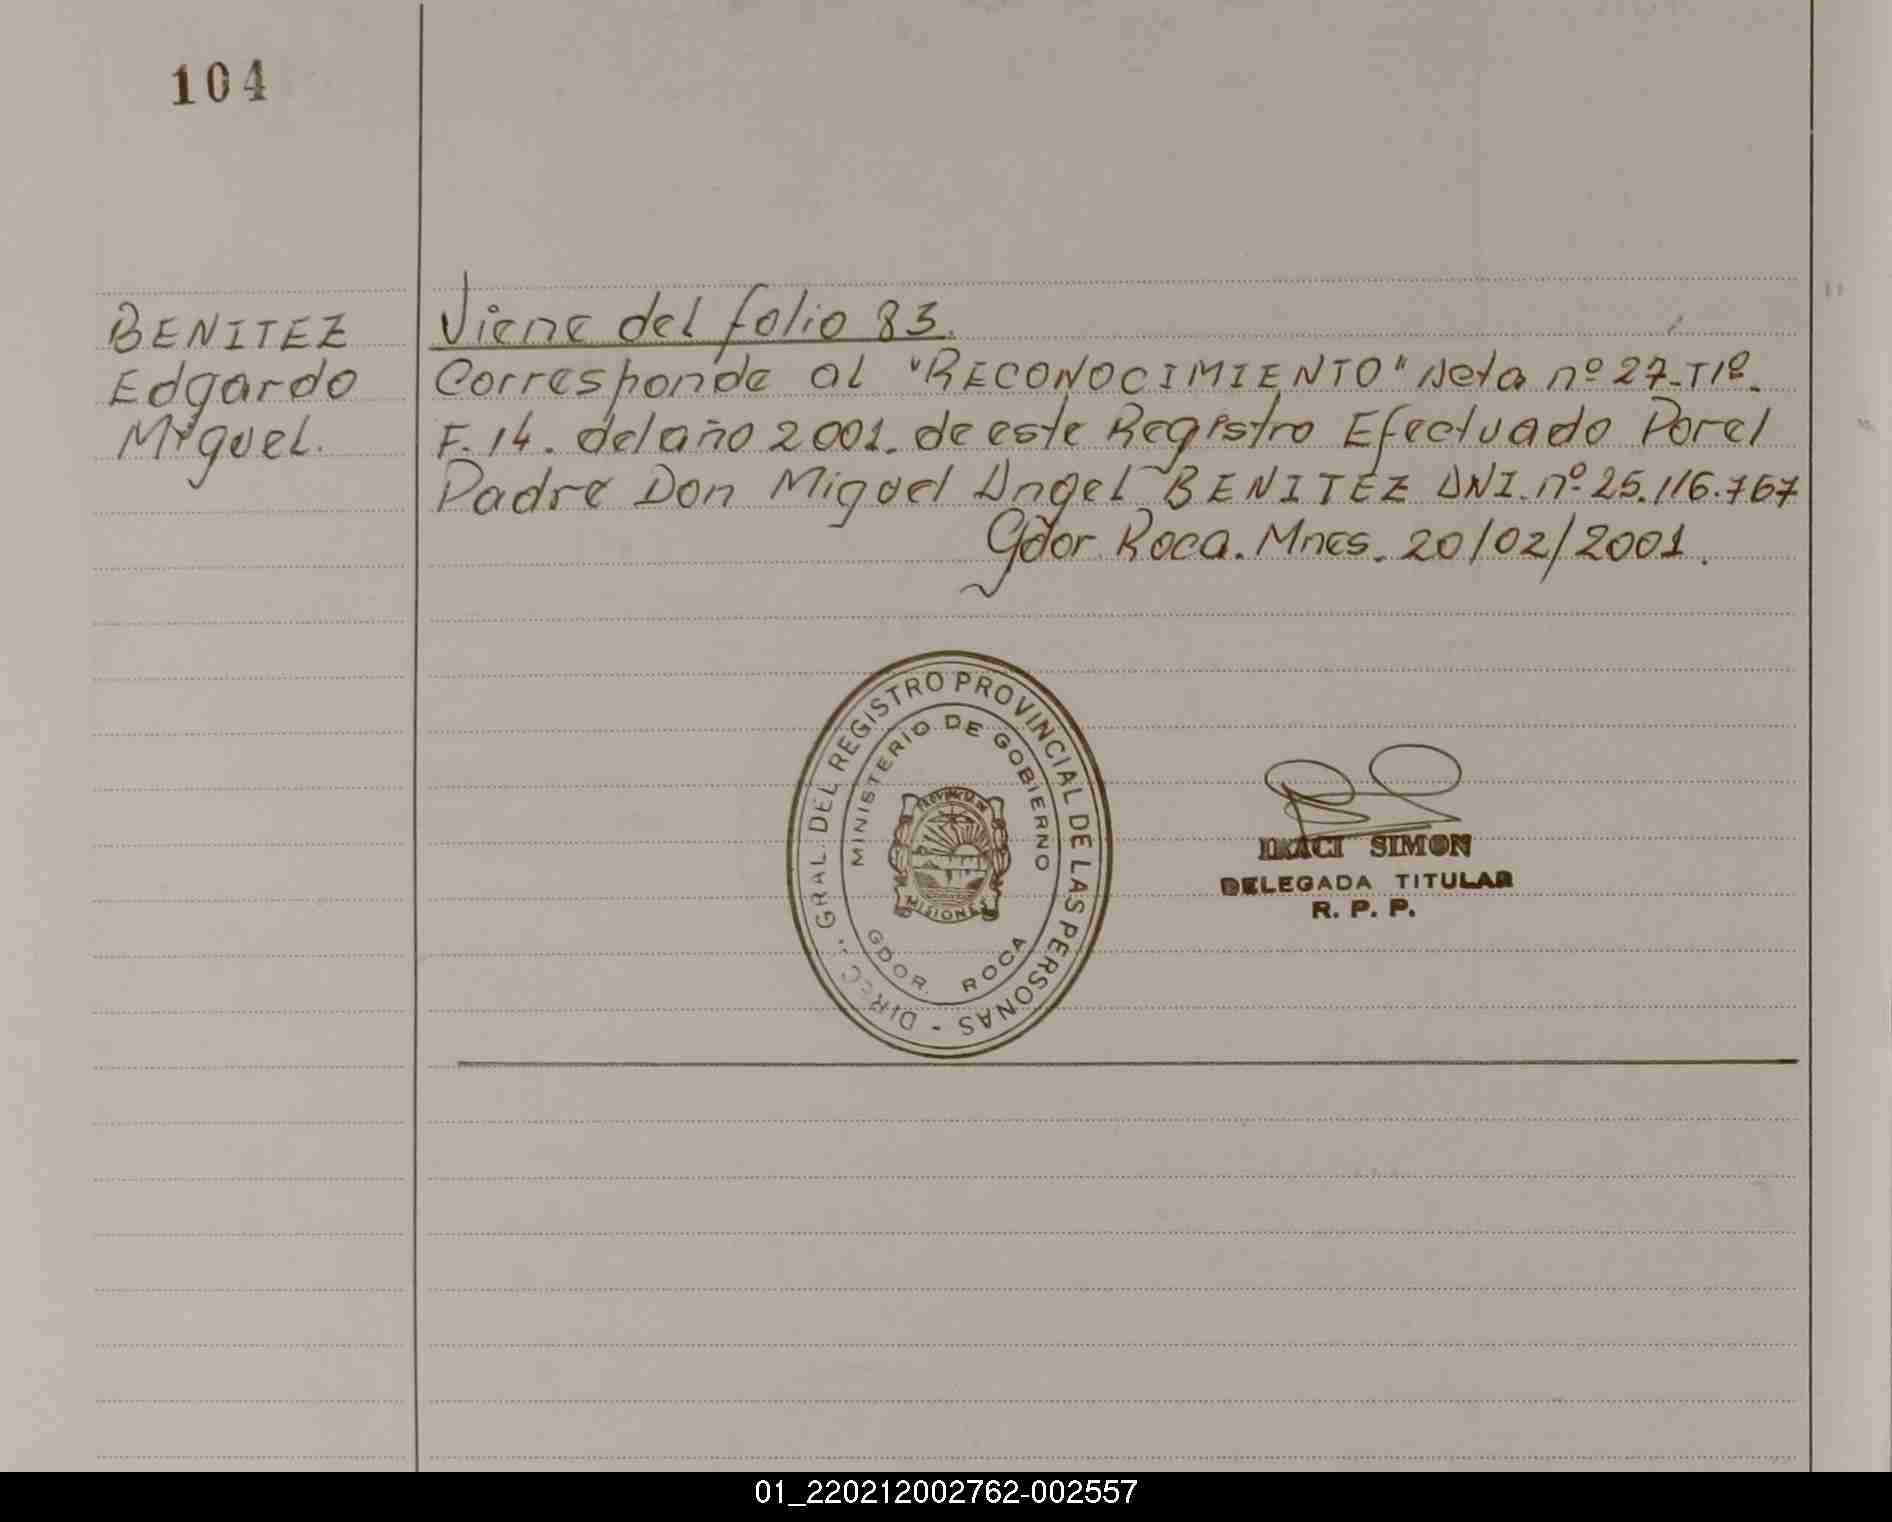 104
BENITEZ
Edgardo
Miguel.
Viene del folio 83.
Corresponde al "RECONOCIMIENTO" Acta nº 27-T1º.
F. 14. del año 2001. de este Registro Efectuado Por el
Padre Don Miguel Angel BENITEZ DNI. nº 25.116.767
Gdor. Roca. Mnes. 20/02/2001.
DIREC. GRAL. DEL REGISTRO PROVINCIAL DE LAS PERSONAS -
MINISTERIO DE GOBIERNO
PROVINCIA DE
MISIONES
GDOR. ROCA
IRACI SIMON
DELEGADA TITULAR
R. P. P.
01_220212002762-002557